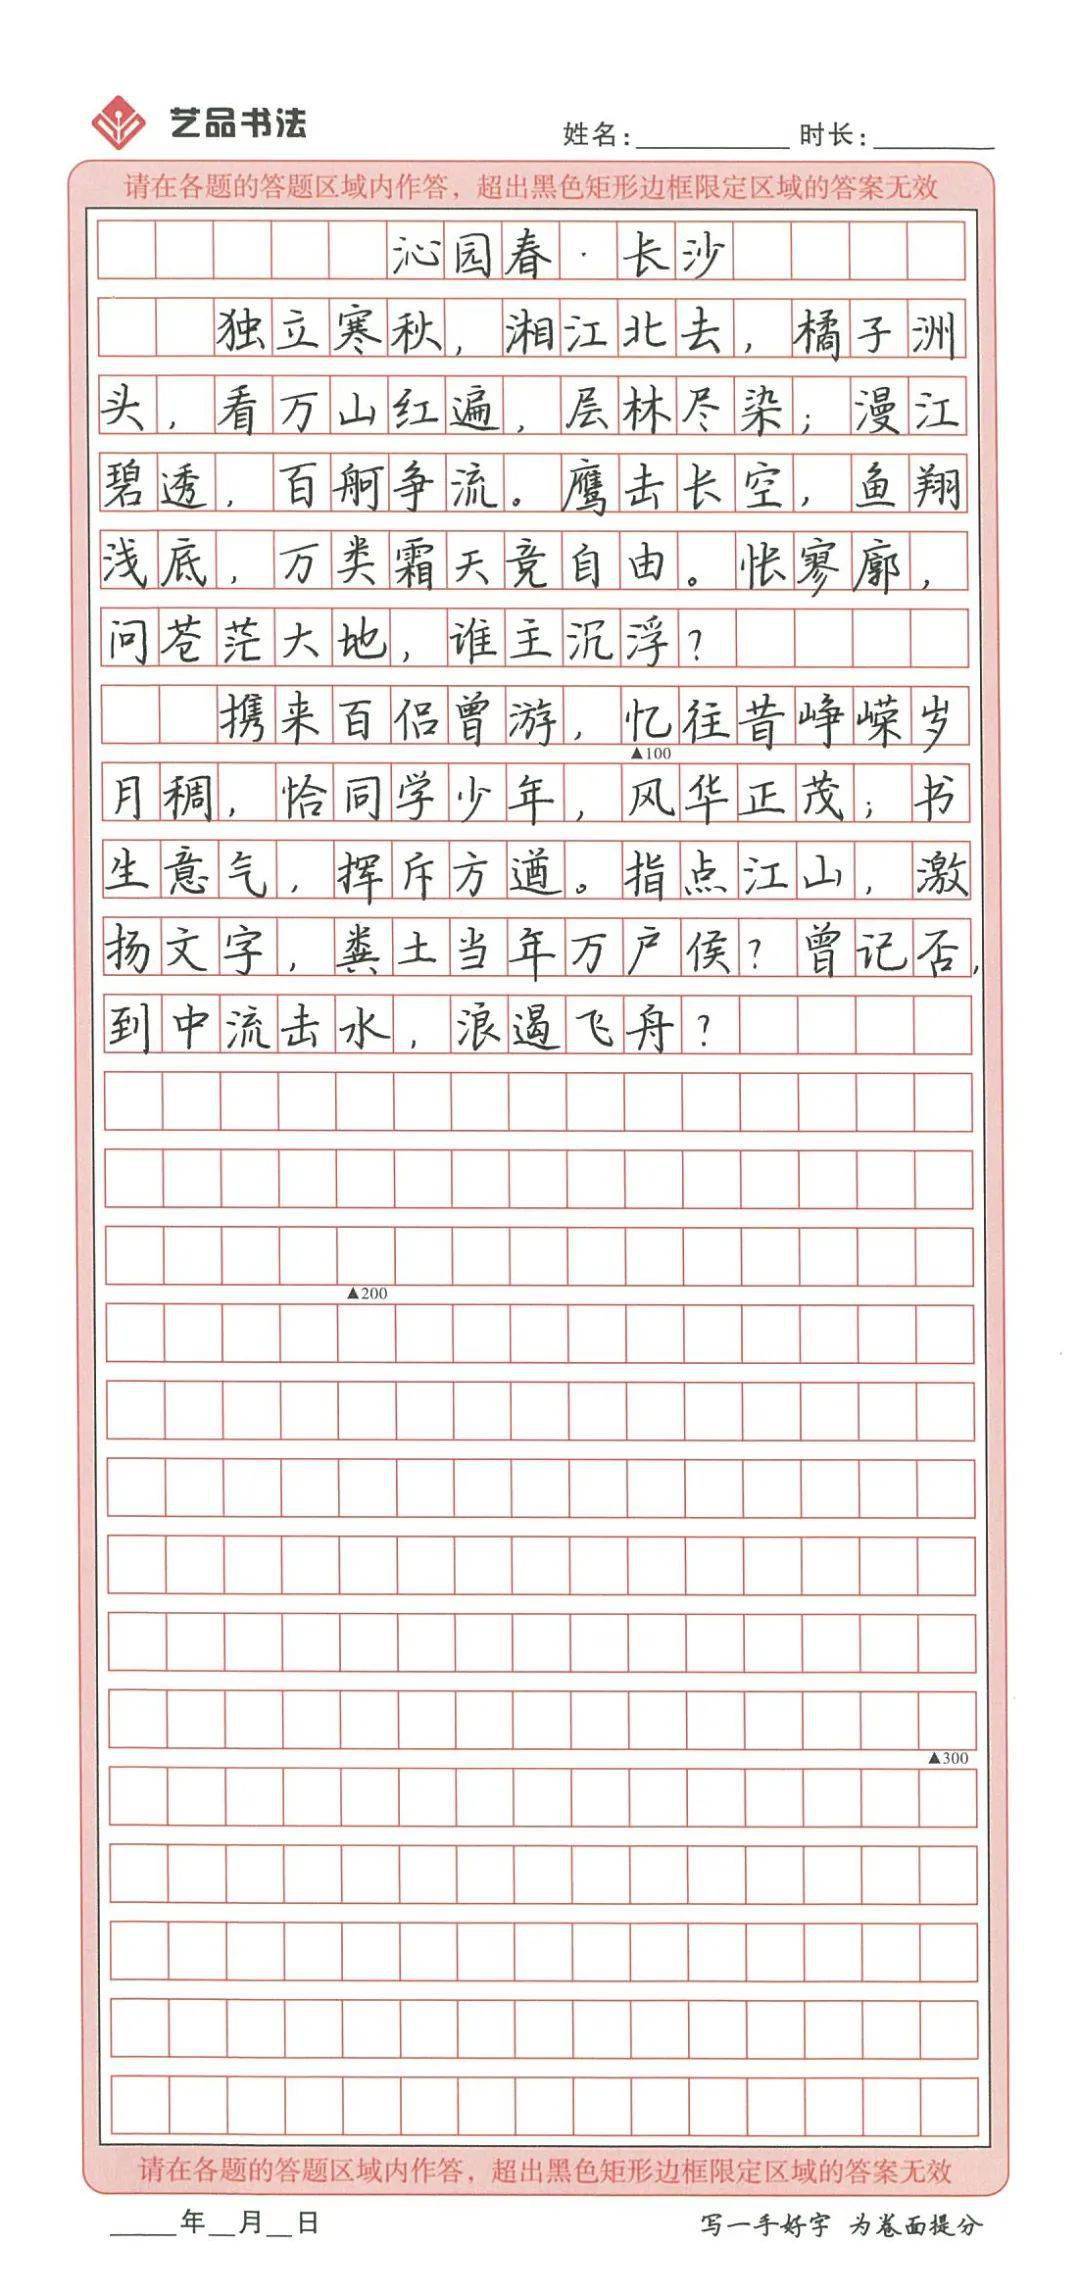 艺品书法
姓名：________ 时长：________
请在各题的答题区域内作答，超出黑色矩形边框限定区域的答案无效
沁园春·长沙
独立寒秋，湘江北去，橘子洲
头，看万山红遍，层林尽染；漫江
碧透，百舸争流。鹰击长空，鱼翔
浅底，万类霜天竞自由。怅寥廓，
问苍茫大地，谁主沉浮？
携来百侣曾游，忆往昔峥嵘岁
▲100
月稠，恰同学少年，风华正茂；书
生意气，挥斥方遒。指点江山，激
扬文字，粪土当年万户侯？曾记否，
到中流击水，浪遏飞舟？
▲200
▲300
请在各题的答题区域内作答，超出黑色矩形边框限定区域的答案无效
____年__月__日
写一手好字 为卷面提分